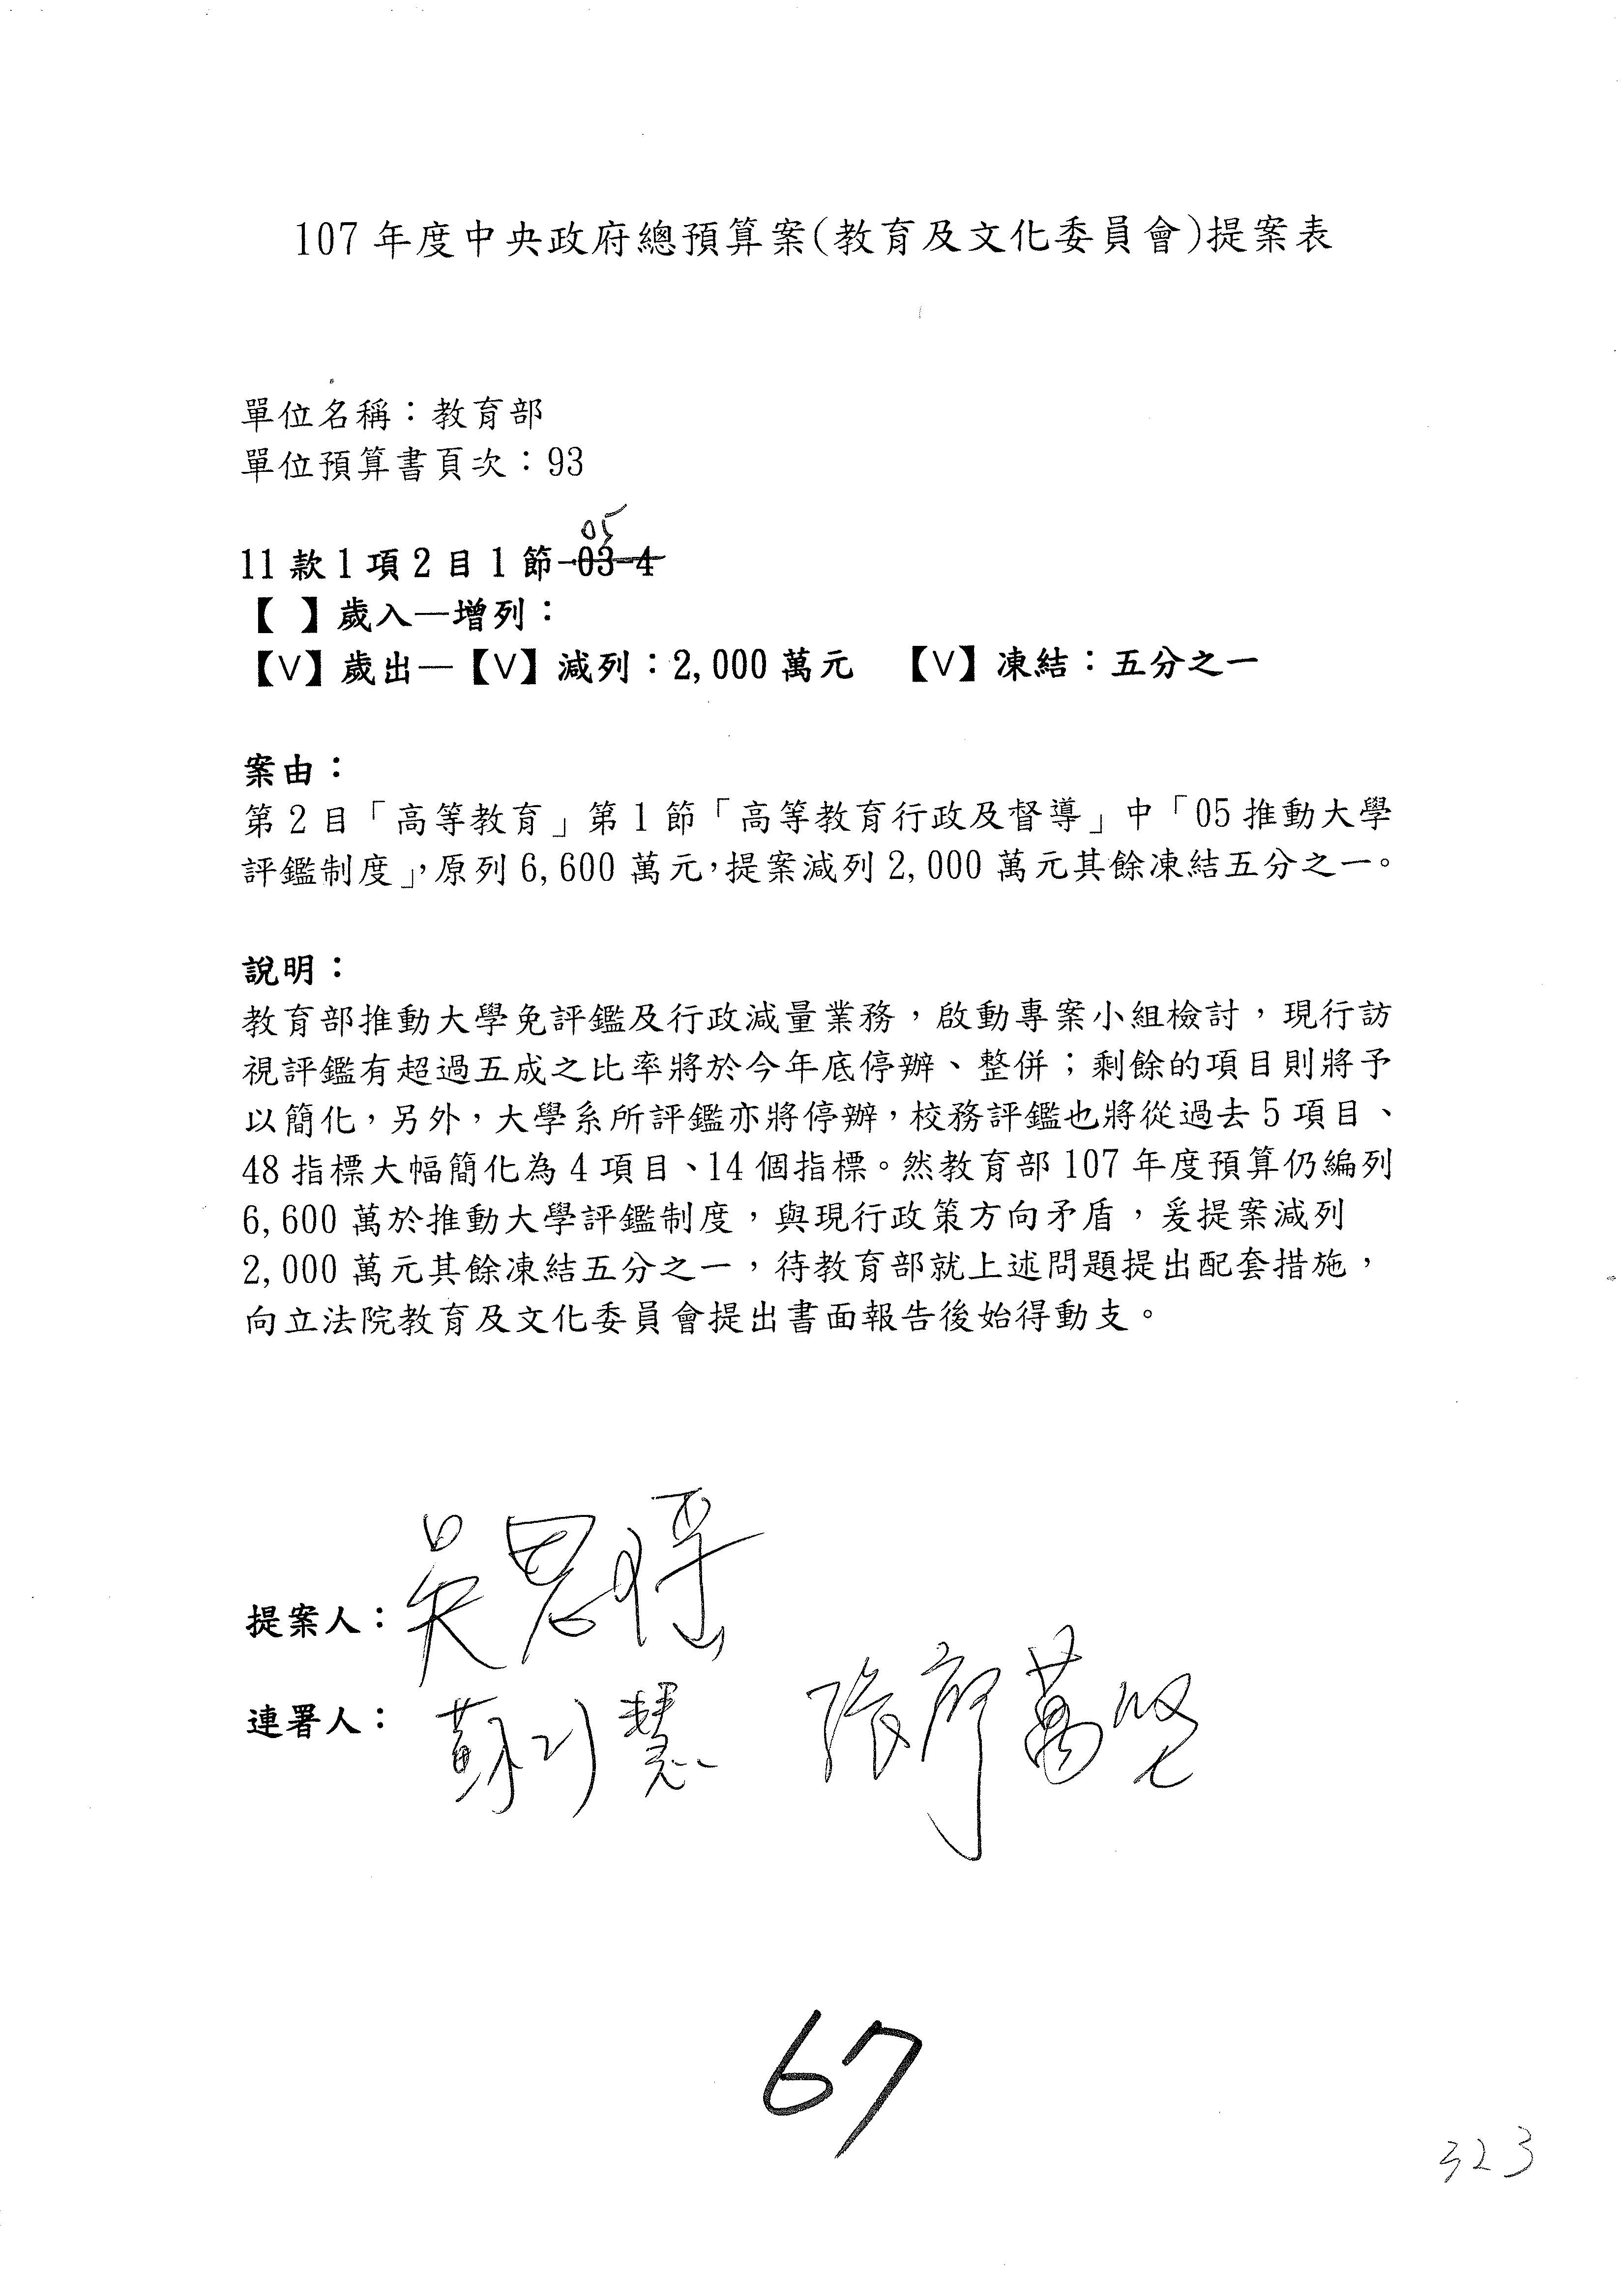 107年度中央政府總預算案(教育及文化委員會)提案表
單位名稱：教育部
單位預算書頁次：93
05
11款1項2目1節-03-4
【 】歲入—增列：
【V】歲出—【V】減列：2,000萬元 【V】凍結：五分之一
案由：
第2目「高等教育」第1節「高等教育行政及督導」中「05推動大學
評鑑制度」，原列6,600萬元，提案減列2,000萬元其餘凍結五分之一。
說明：
教育部推動大學免評鑑及行政減量業務，啟動專案小組檢討，現行訪
視評鑑有超過五成之比率將於今年底停辦、整併；剩餘的項目則將予
以簡化，另外，大學系所評鑑亦將停辦，校務評鑑也將從過去5項目、
48指標大幅簡化為4項目、14個指標。然教育部107年度預算仍編列
6,600萬於推動大學評鑑制度，與現行政策方向矛盾，爰提案減列
2,000萬元其餘凍結五分之一，待教育部就上述問題提出配套措施，
向立法院教育及文化委員會提出書面報告後始得動支。
提案人：吳思瑤
連署人：蘇巧慧 張廖萬堅
67
323